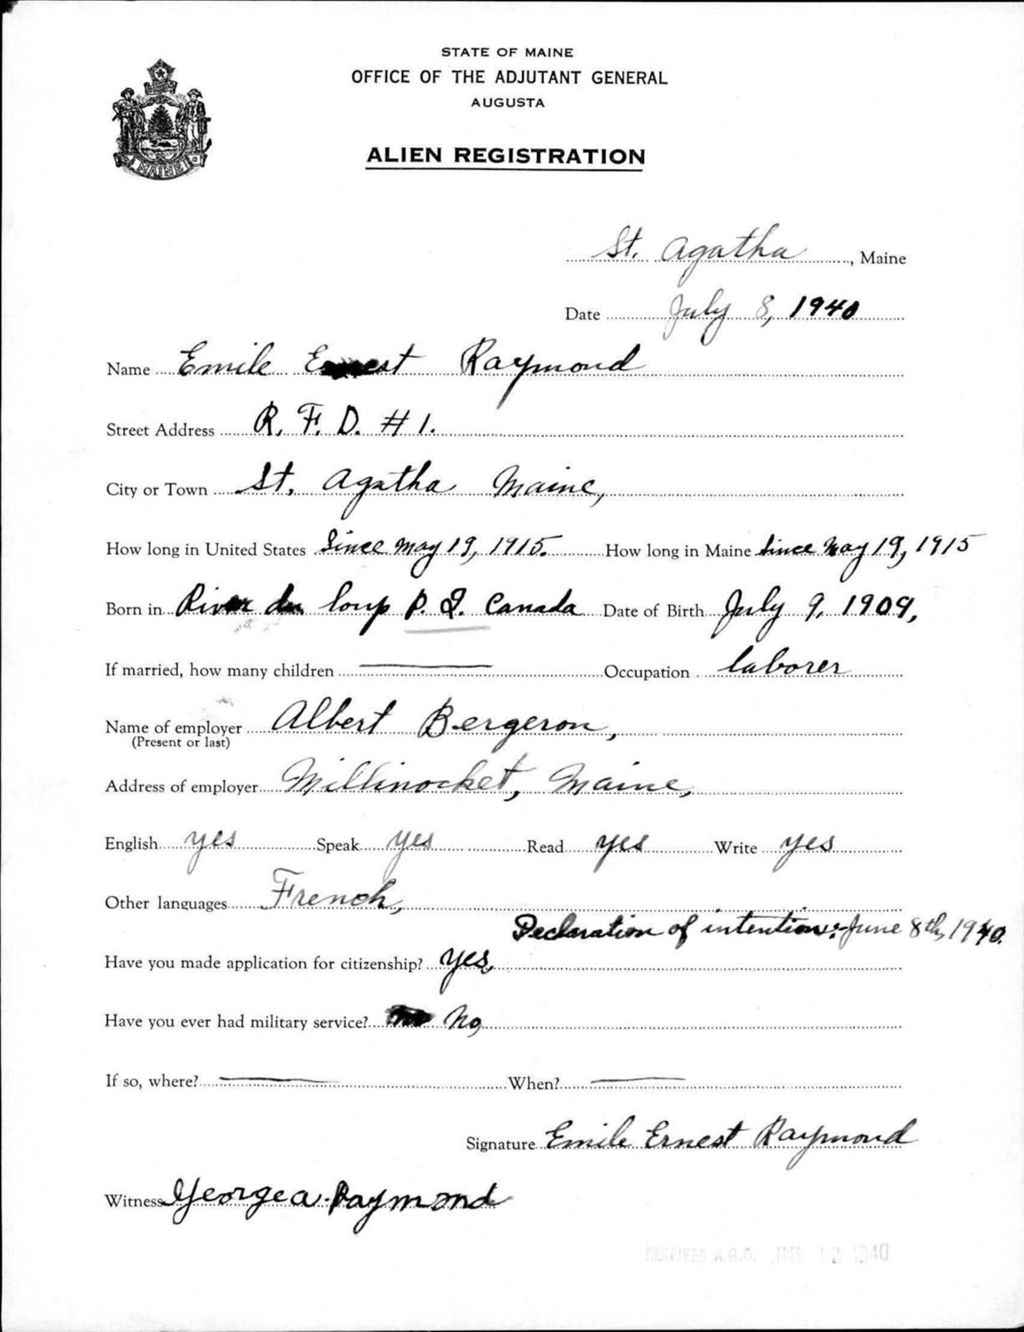 STATE OF MAINE
OFFICE OF THE ADJUTANT GENERAL
AUGUSTA
ALIEN REGISTRATION
MAINE
St. Agatha, Maine
Date July 8, 1940
Name Emile Ernest Raymond
Street Address R. F. D. #1.
City or Town St. Agatha Maine,
How long in United States Since May 19, 1915. How long in Maine Since May 19, 1915
Born in River du loup P. Q. Canada Date of Birth July 9, 1909,
If married, how many children Occupation laborer
Name of employer Albert Bergeron,
(Present or last)
Address of employer Millinocket, Maine,
English yes Speak yes Read yes Write yes
Other languages French,
Declaration of intention: June 8th, 1940.
Have you made application for citizenship? Yes,
Have you ever had military service? No,
If so, where? When?
Signature Emile Ernest Raymond
Witness Georgea Raymond
RECEIVED A.G.O. JUL 12 1940